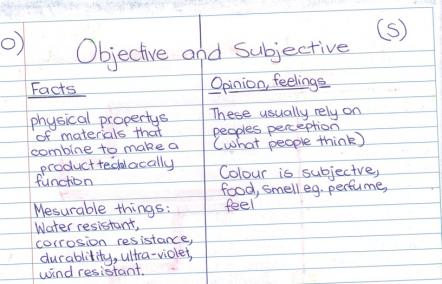 O)
(S)
Objective and Subjective
Facts
physical propertys
of materials that
combine to make a
product techlacally
function
Mesurable things:
Water resistant,
corrosion resistance,
durablitity, ultra-violet,
wind resistant.
Opinion, feelings
These usually rely on
peoples perception
(what people think)
Colour is subjectve,
food, smell eg. perfume,
feel